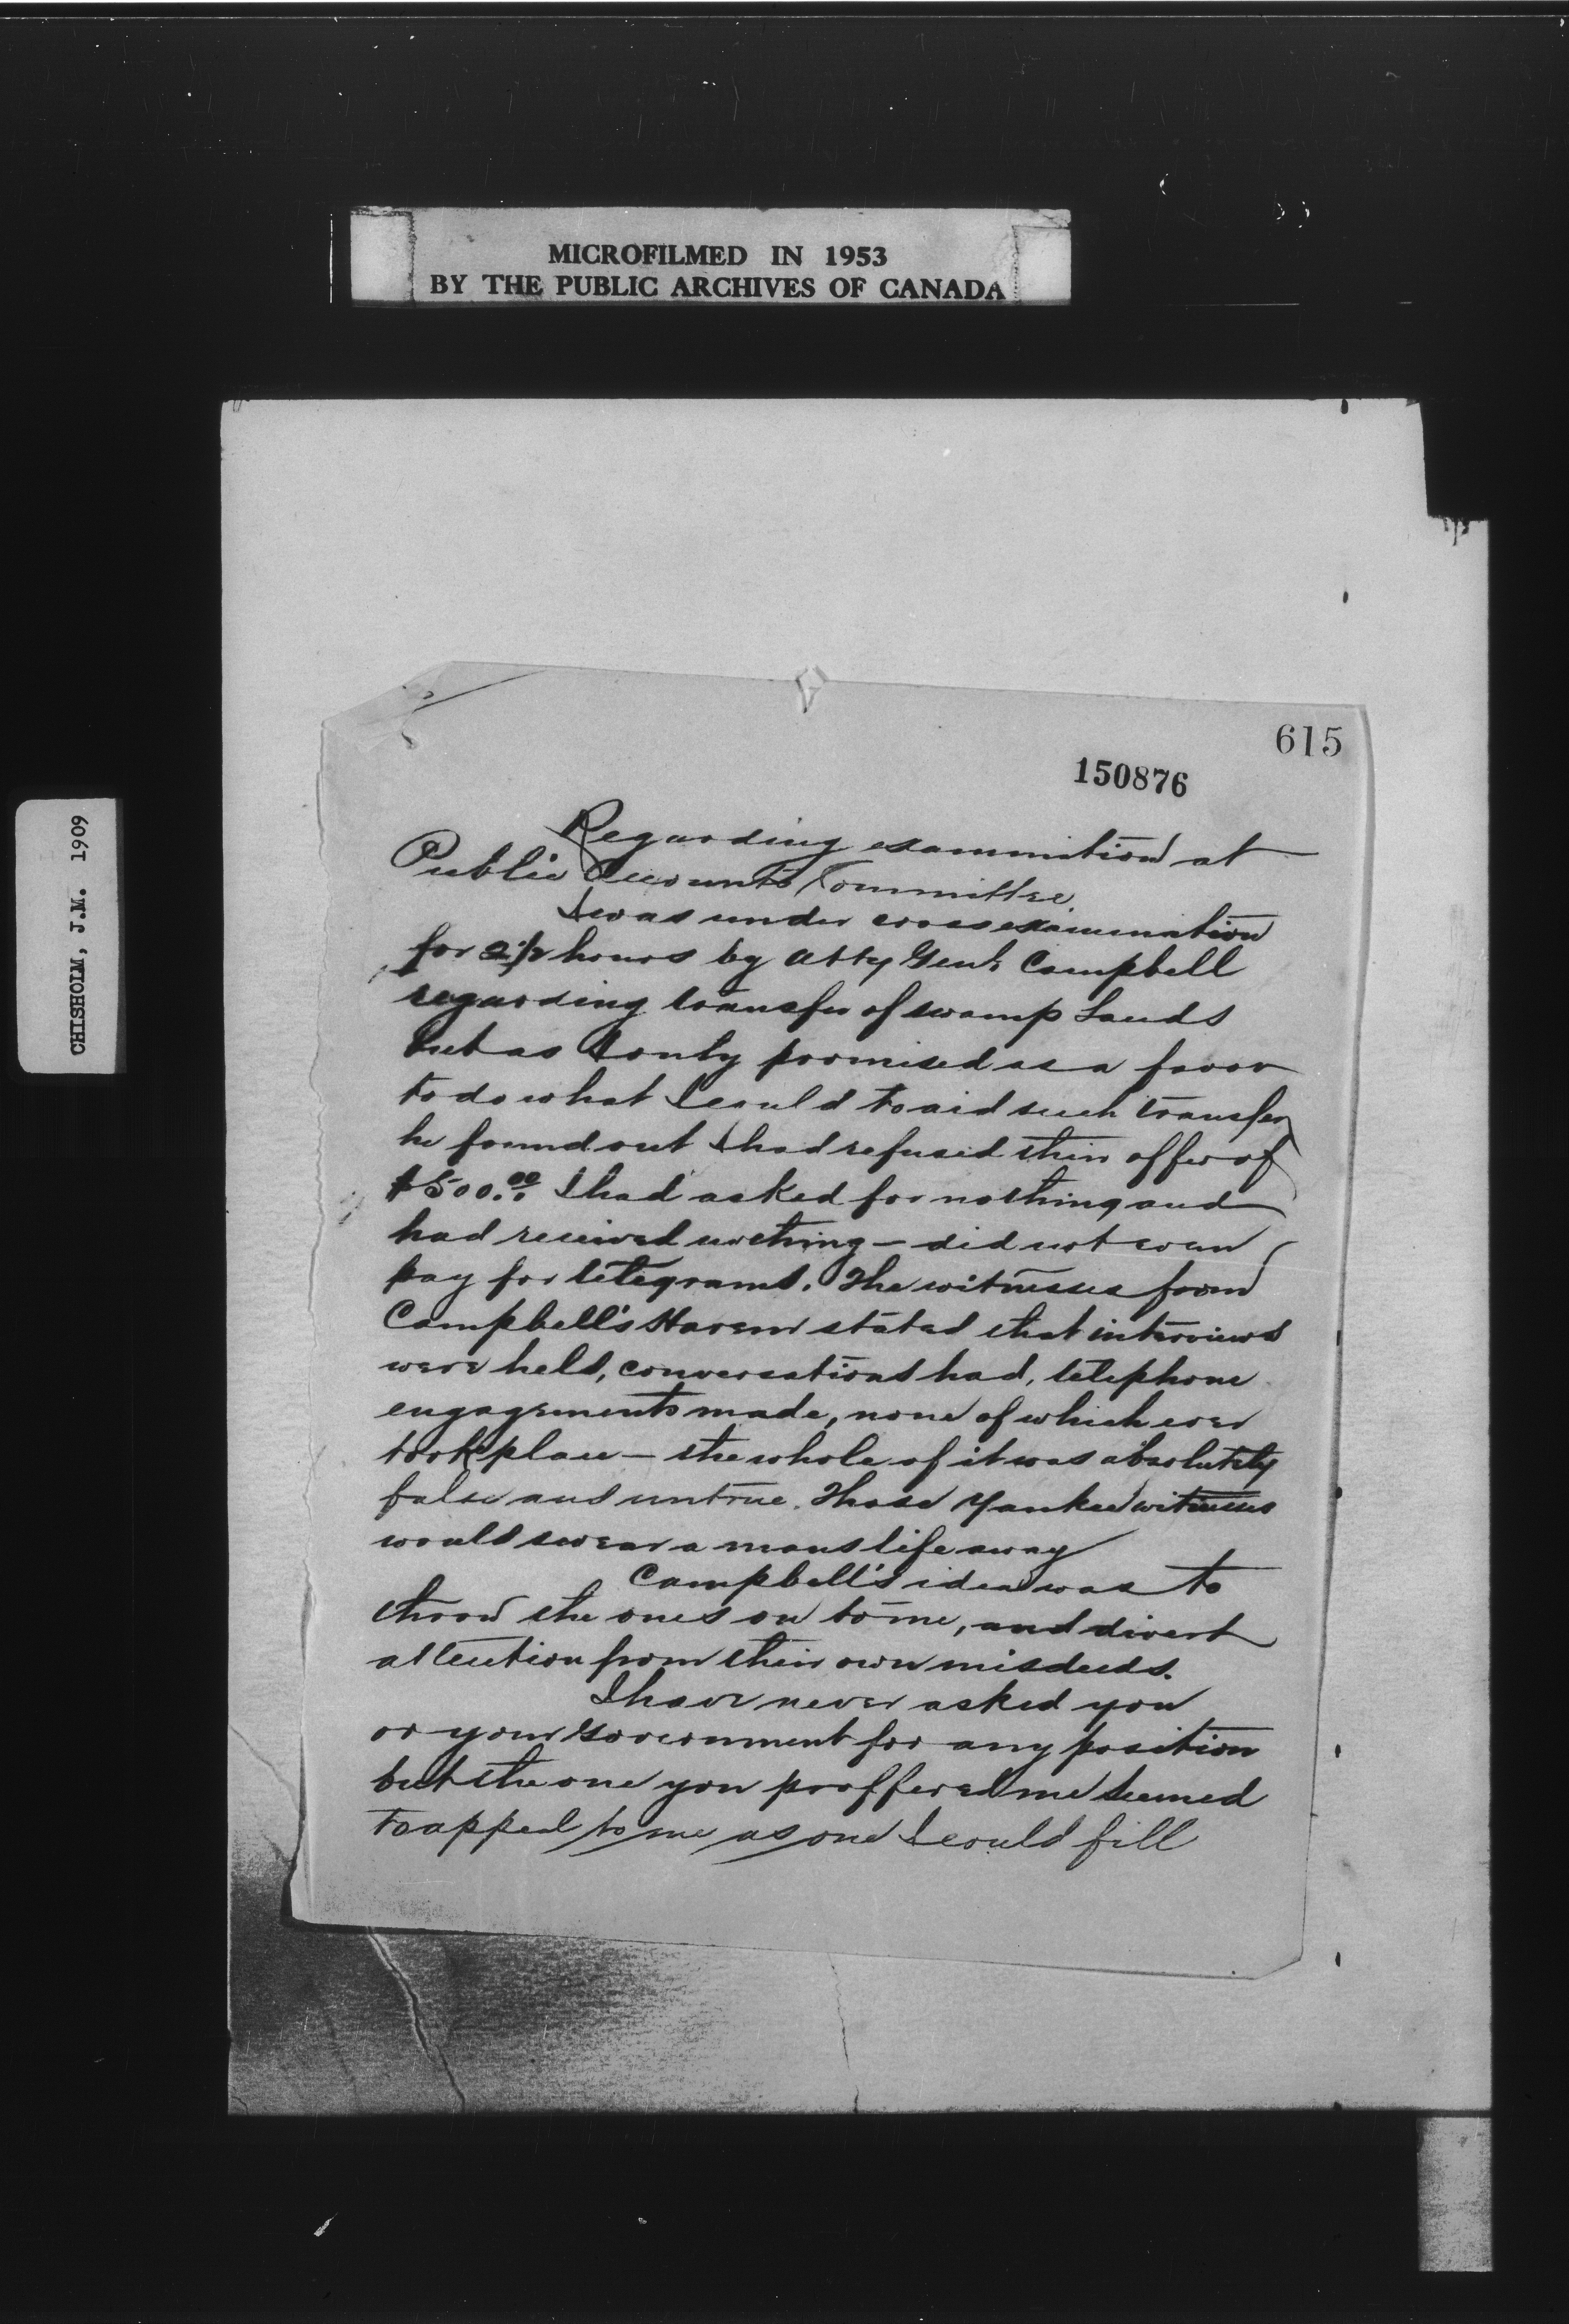 MICROFILMED IN 1953
BY THE PUBLIC ARCHIVES OF CANADA
CHISHOLM, J.M. 1909
615
150876
Regarding examination at
Public Accounts Committee.
I was under cross examination
for 2 1/2 hours by Atty Genl. Campbell
regarding transfer of swamp Lands
but as I only promised as a favor
to do what I could to aid such transfer
he found out I had refused their offer of
$500.00 I had asked for nothing and
had received nothing – did not even
pay for telegrams. The witnesses from
Campbell's Harem stated that interviews
were held, conversations had, telephone
engagements made, none of which ever
took place – the whole of it was absolutely
false and untrue. Those Yankee witnesses
would swear a mans life away
Campbell's idea was to
throw the ones on to me, and divert
attention from their own misdeeds.
I have never asked you
or your Government for any position
but the one you proffered me seemed
to appeal to me as one I could fill